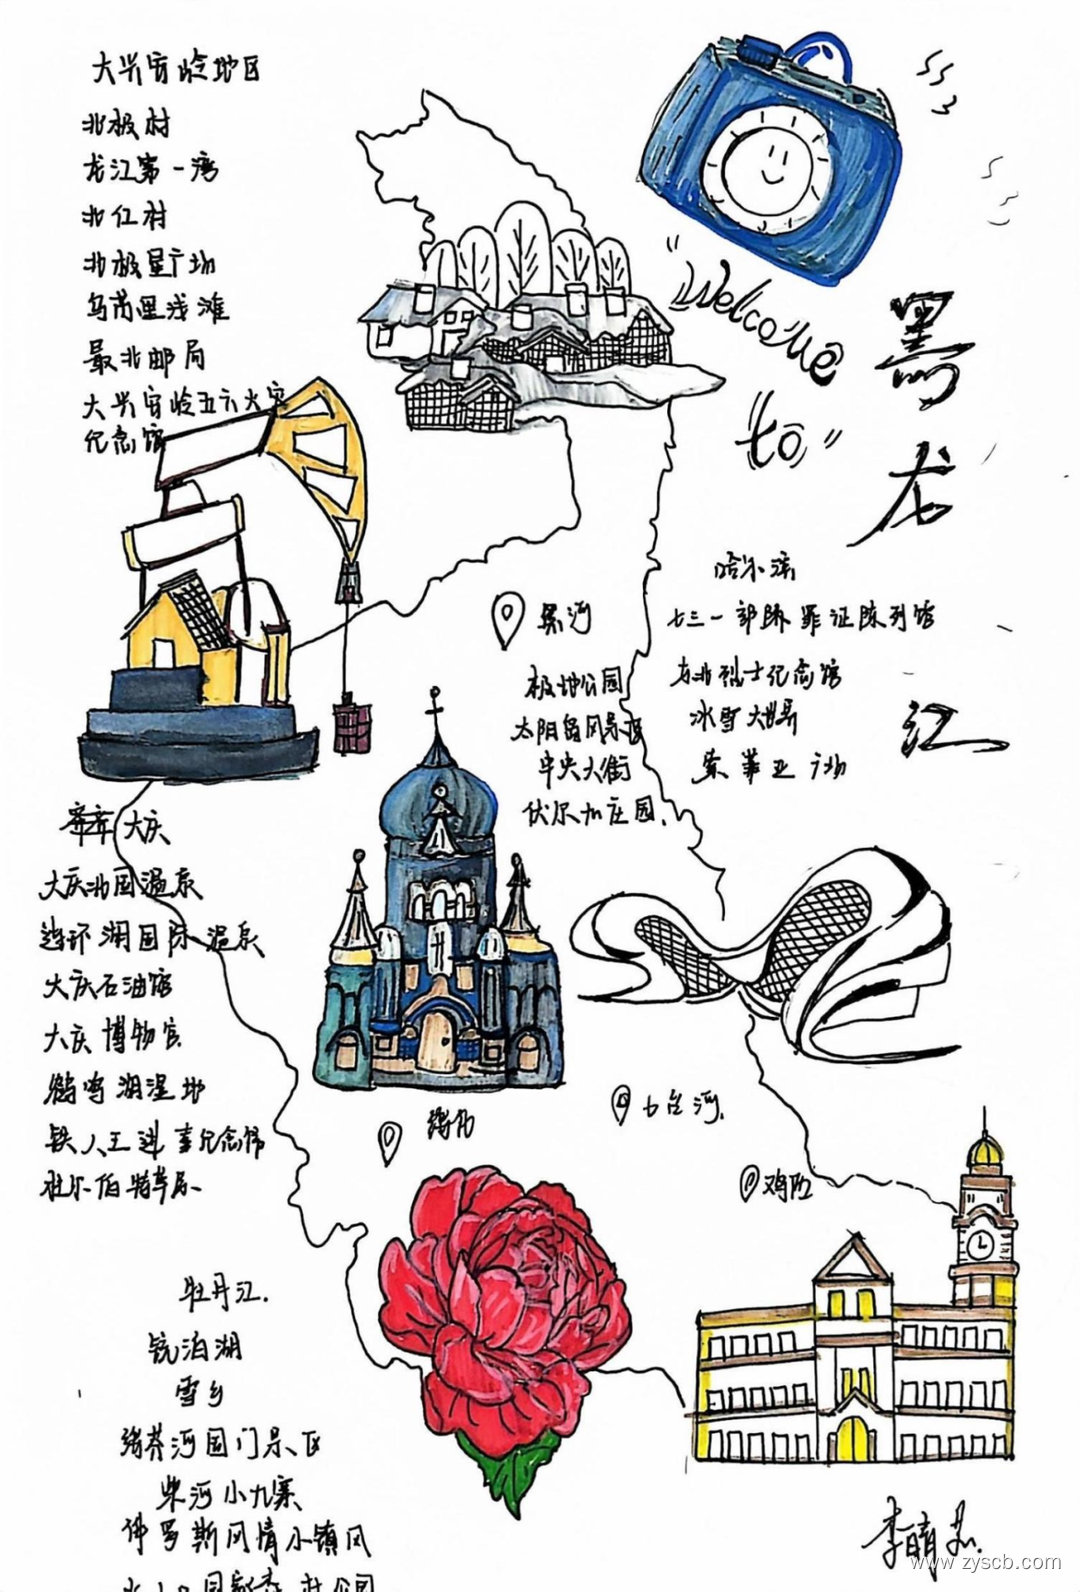 大兴安岭地区
北极村
龙江第一湾
北红村
北极星广场
乌苏里浅滩
最北邮局
大兴安岭五六火灾
纪念馆
"Welcome
to"
黑龙江
哈尔滨
七三一部队罪证陈列馆
东北烈士纪念馆
冰雪大世界
索菲亚广场
黑河
极地公园
太阳岛风景区
中央大街
伏尔加庄园.
大庆
大庆北国温泉
连环湖国际温泉
大庆石油馆
大庆博物馆
鹤鸣湖湿地
铁人王进喜纪念馆
杜尔伯特草原
绥化
七台河.
鸡西
牡丹江.
镜泊湖
雪乡
绥芬河国门景区
柴河小九寨
俄罗斯风情小镇风
www.zyscb.com